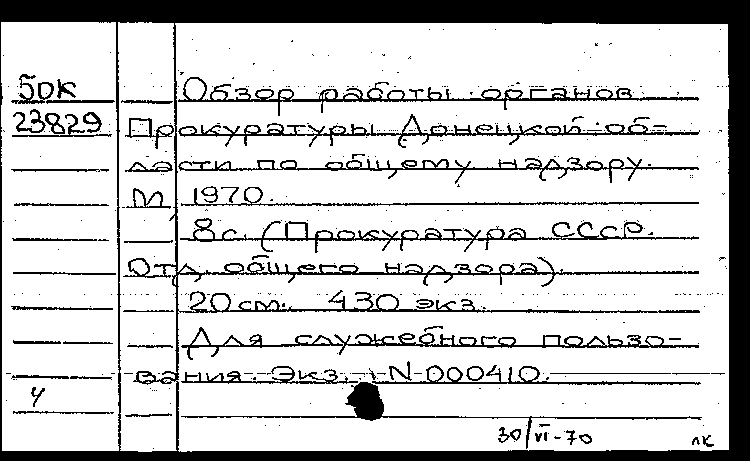 50К Обзор работы органов
23829 Прокуратуры Донецкой об-
ласти по общему надзору.
М, 1970.
8с. (Прокуратура СССР.
Отд. общего надзора).
20 см. 430 экз.
Для служебного пользо-
вания. Экз. N-000410.
4
30/VI-70 лк